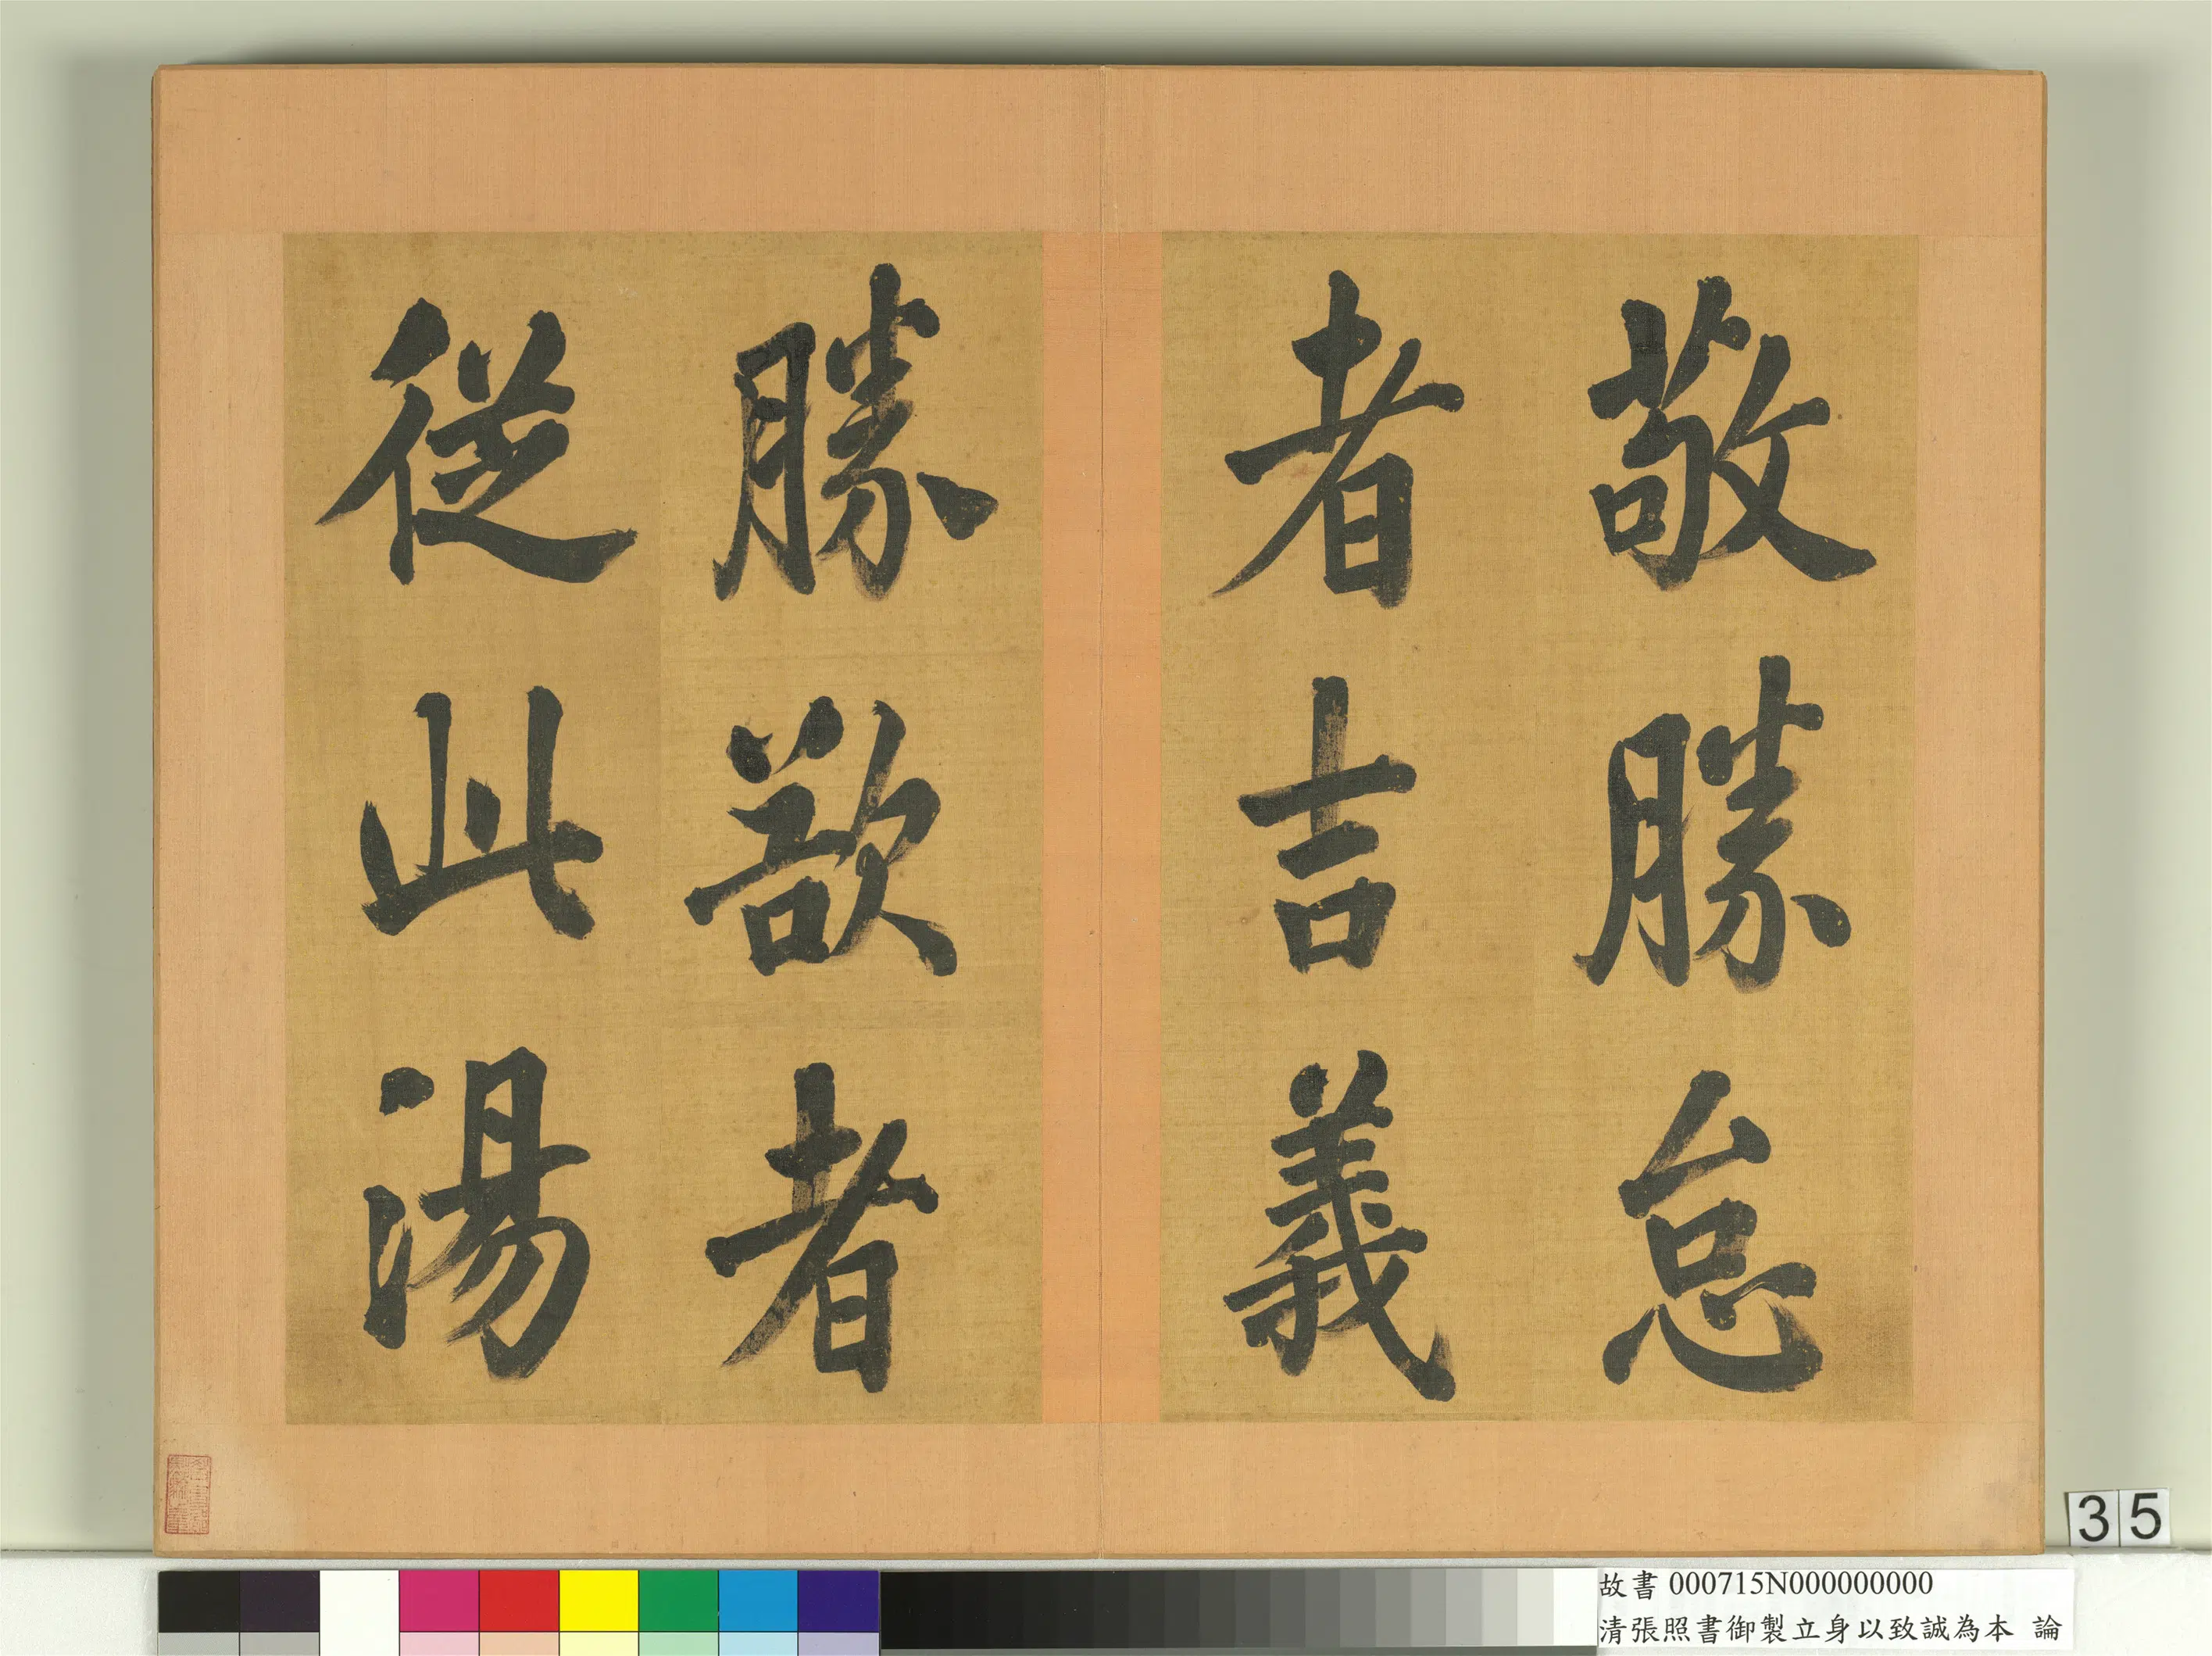 敬勝怠
者吉義
勝欲者
從此湯
35
故書 000715N000000000
清張照書御製立身以致誠為本 論